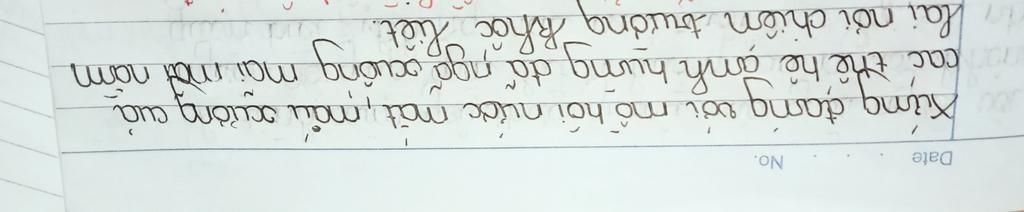 Date . . . No.
Xứng đáng với mồ hôi nước mắt, máu xương của
các thế hệ anh hùng đã ngã xuống mãi mãi nằm
lại nơi chiến trường khốc liệt.